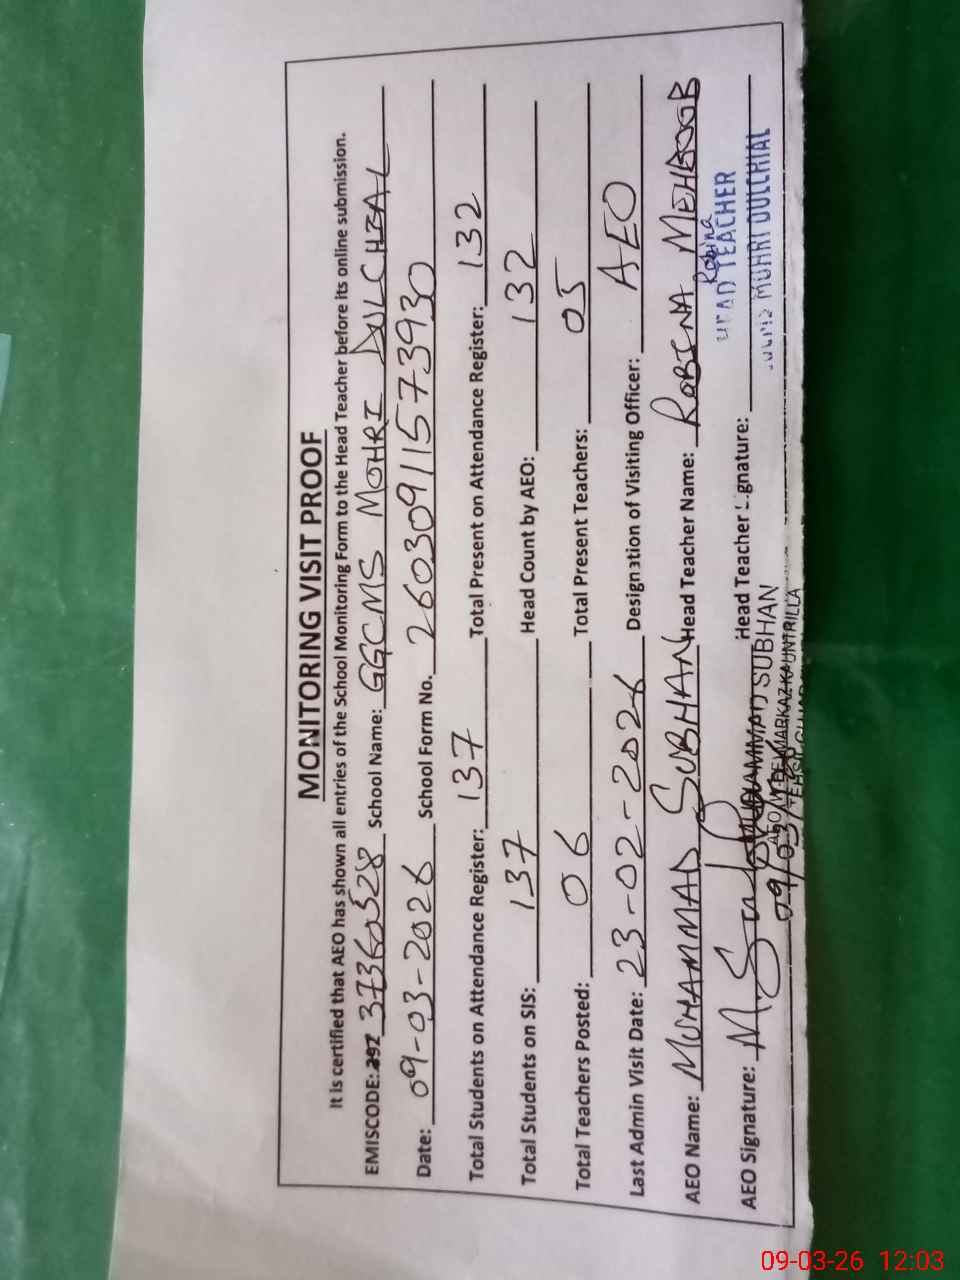 MONITORING VISIT PROOF
It is certified that AEO has shown all entries of the School Monitoring Form to the Head Teacher before its online submission.
EMISCODE: 37360528 School Name: GGCMS MOHRI DULCHIAL
Date: 09-03-2026 School Form No. 26030911573930
Total Students on Attendance Register: 137 Total Present on Attendance Register: 132
Total Students on SIS: 137 Head Count by AEO: 132
Total Teachers Posted: 06 Total Present Teachers: 05
Last Admin Visit Date: 23-02-2026 Designation of Visiting Officer: AEO
AEO Name: MUHAMMAD SUBHAN Head Teacher Name: ROBINA MEHBOOB
Robina
HEAD TEACHER
AEO Signature: M. Subhan Head Teacher Signature:
MOHRI DULCHIAL
MUHAMMAD SUBHAN
AEO MARKAZ KAUNTRILLA
09/03/26
09-03-26 12:03